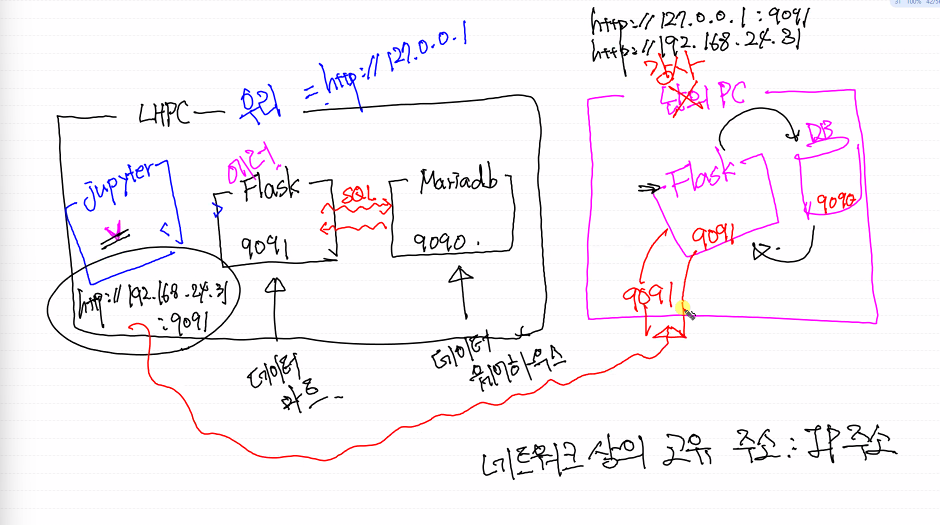 http://127.0.0.1:9091
http://192.168.24.31
강사
PC
LHPC
= http://127.0.0.1
jupyter
Flask
SQL
Mariadb
9091
9090.
http://192.168.24.31
:9091
데이터
마트
데이터
웨어하우스
Flask
DB
9090
9091
9091
네트워크 상의 고유 주소 : IP 주소
100%